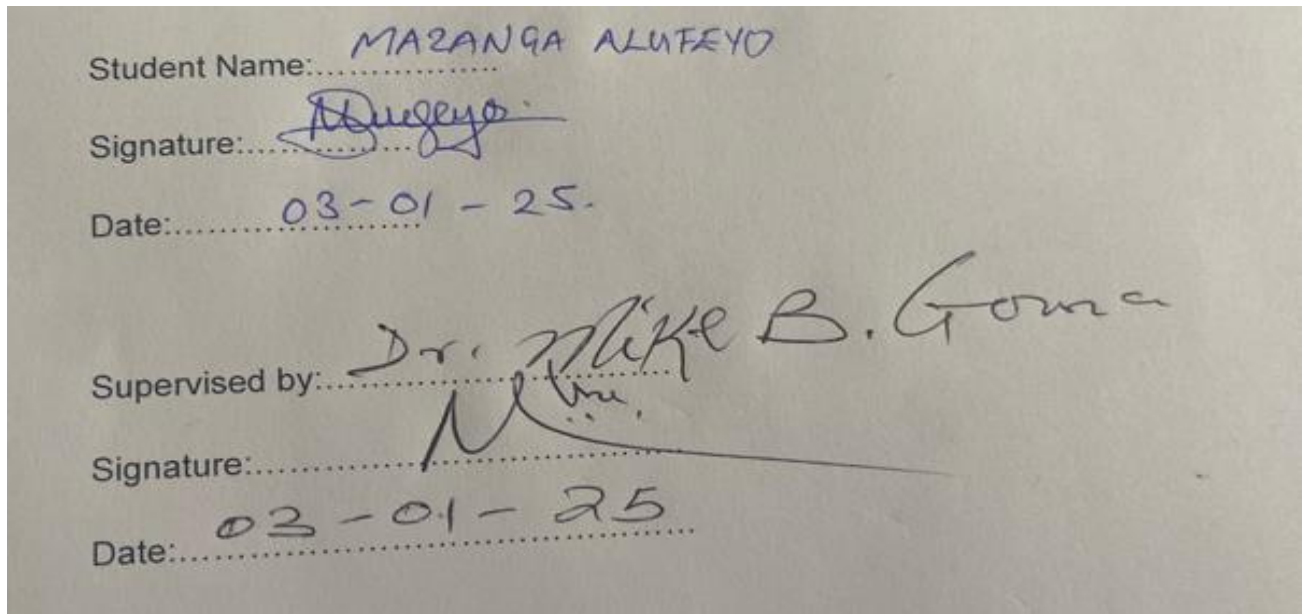 Student Name:.................. MAZANGA ALUFEYO
Signature:................
Date:...................... 03-01-25.
Supervised by:............................ Dr. Mike B. Goma
Signature:..................................
Date:........................................ 03-01-25